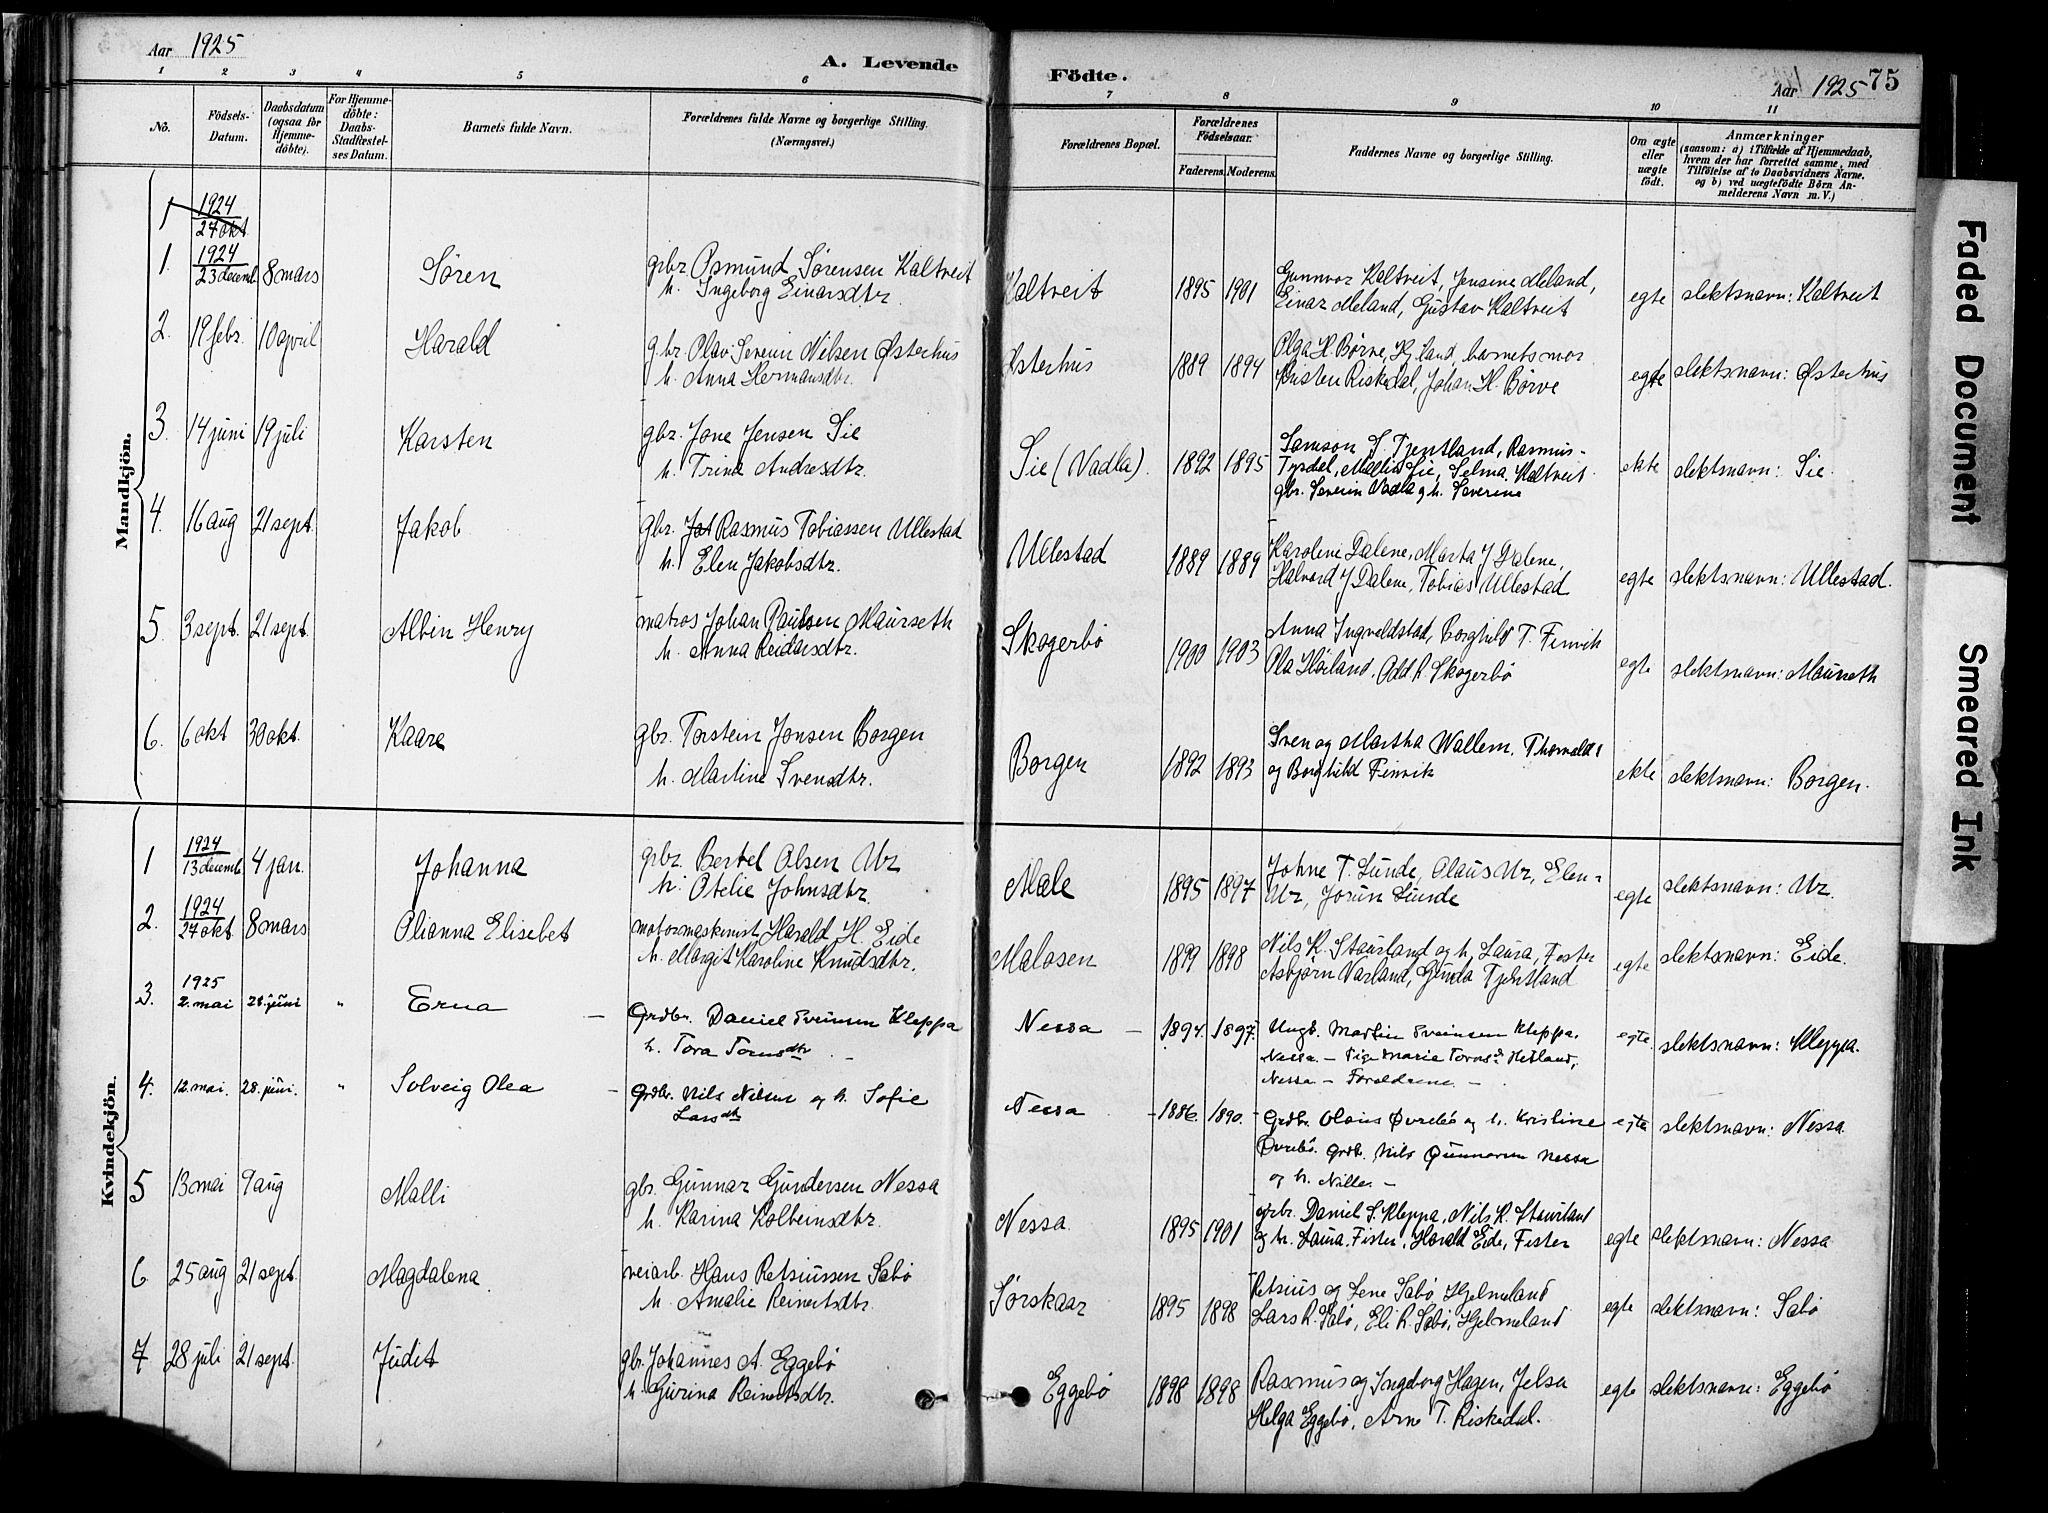 Aar 1925
A. Levende
Födte.
Aar 1925 75
1 2 3 4 5 6 7 8 9 10 11
No.
Födsels-
Datum.
Daabsdatum
(ogsaa for
Hjemme-
döbte).
For Hjemme-
döbte:
Daabs-
Stadfæstel-
ses Datum.
Barnets fulde Navn.
Forældrenes fulde Navne og borgerlige Stilling.
(Næringsvei.)
Forældrenes Bopæl.
Forældrenes
Födselsaar.
Faderens. Moderens.
Faddernes Navne og borgerlige Stilling.
Om ægte
eller
uægte
födt.
Anmærkninger
(saasom: a) i Tilfælde af Hjemmedaab,
hvem der har forrettet samme, med
Tilföielse af to Daabsvidners Navne,
og b) ved uægtefödte Börn An-
melderens Navn m. V.)
Mandkjön.
1 1924
27 okt.
1. 1924
23 decemb. 8 mars Søren grbr. Osmund Sørensen Kaltveit
h. Ingeborg Einarsdtr.
Kaltveit 1895 1901 Gunnvor Kaltveit, Jensine Meland,
Einar Meland, Gustav Kaltveit egte slektsnavn: Kaltveit
2. 19 febr. 10 april Harald g.br. Olav Severin Nilsen Østerhus
h. Anna Hermansdtr.
Østerhus 1889 1894 Olga H. Børve, Hjland, barnets mor
Kristen Riskedal, Johan H. Börve egte slektsnavn: Østerhus
3. 14 juni 19 juli Karsten gbr. Jone Jensen Sie
h. Trine Andresdtr.
Sie (Vadla). 1892 1895 Samson J. Tjentland, Rasmus
Tyrdal, Malli Sie, Selma Kaltveit
gbr. Severin Vadla og h. Severine ekte slektsnavn: Sie.
4. 16 aug 21 sept. Jakob gbr. Jak Rasmus Tobiassen Ullestad
h. Elen Jakobsdtr.
Ullestad 1889 1889 Karoline Dalene, Marta J Dalene,
Halvard J Dalene, Tobias Ullestad egte slektsnavn: Ullestad.
5. 3 sept. 21 sept. Albin Henry matros Johan Paulsen Maurseth
h. Anna Reidarsdtr.
Skogerbö 1900 1903 Anna Ingvaldstad, Borghild T. Finvik
Ola Høiland, Odd R. Skogerbö egte slektsnavn: Maurseth
6. 6 okt 30 okt. Kaare gbr. Torstein Jonsen Borgen
h. Martine Svensdtr.
Borgen 1892 1893 Sven og Martha Wallem, Thorvald
og Borghild Finvik ekte slektsnavn: Borgen.
Kvindekjön.
1 1924
13 decemb. 4 jan. Johanna grbr. Bertel Olsen Ur
h. Otelie Johnsdtr.
Male 1895 1897 Johne T. Lunde, Olaus Ur, Elen
Ur, Jorun Lunde egte slektsnavn: Ur.
2. 1924
27 okt. 8 mars Olianna Elisebet motormaskinist Harald H. Eide
h. Margit Karoline Knudsdtr.
Malasen 1899 1898 Nils K. Staurland og h. Laura, Fister
Asbjørn Vasland, Gunda Tjentland egte slektsnavn: Eide.
3. 1925
2. mai 28. juni " Erna Grdbr. Daniel Sveinsen Kleppa
h. Tora Tornsdtr.
Nessa 1894. 1897. Ungk. Martin Sveinsen Kleppa.
Nessa. – Pige Marie Torns. Hetland,
Nessa – Foreldrene – egte. slektsnavn: Kleppa.
4. 12. mai. 28. juni. " Solveig Olea Grdbr. Nils Nilsen og h. Sofie
Larsdtr.
Nessa 1886. 1890. Grdbr. Olaus Øvrebö og h. Kristine
Øvrebö. Grdb. Nils Gunnarsen Nessa
og h. Nille. – egte slektsnavn: Nessa
5 13 mai 9 aug Malli gbr. Gunnar Gundersen Nessa
h. Karina Kolbeinsdtr.
Nessa 1895 1901 grbr. Daniel S. Kleppa, Nils K. Staurland
og h. Laura, Fister, Harald Eide, Fister egte slektsnavn: Nessa
6 25 aug 21 sept. Magdalena veiarb. Hans Retsiussen Sabö
h. Amalie Reinertsdtr.
Sørskaar 1895 1898 Retsius og Lene Sabø, Hjelmeland
Lars R. Sabø, Eli R. Sabø, Hjelmeland egte slektsnavn: Sabø
7 28 juli 21 sept. Judit gbr. Johannes A. Eggebö
h. Gurina Reinertsdtr.
Eggebö 1898 1898 Rasmus og Ingeborg Hagen, Jelsa
Helga Eggebö, Arne T. Riskedal. egte slektsnavn: Eggebö
Faded Document
Smeared Ink